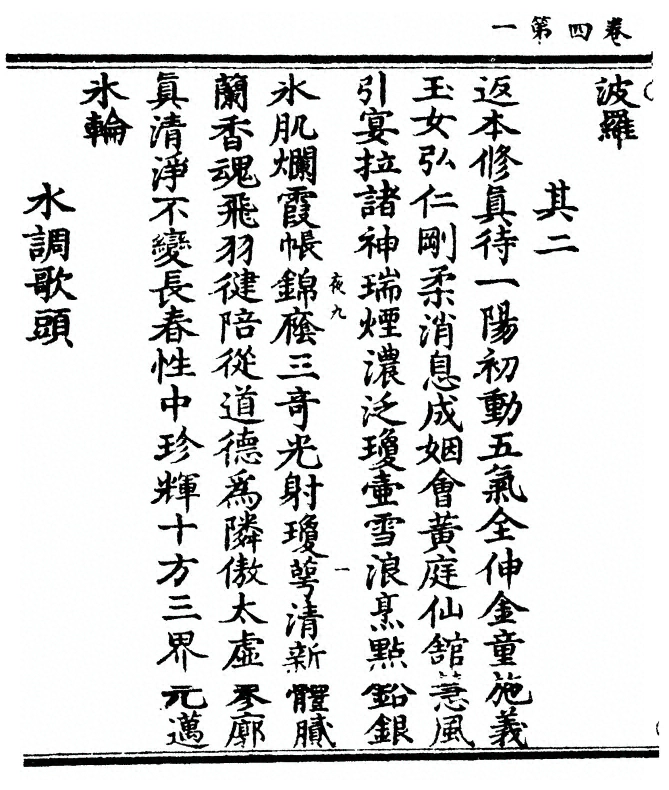 卷四第一
波羅
其二
返本修真待一陽初動五氣全伸金童施義
玉女弘仁剛柔消息成姻會黃庭仙舘蕙風
引宴拉諸神瑞煙濃泛瓊壷雪浪烹點鉛銀
氷肌爛霞帳錦廕三奇光射瓊萼清新體膩
夜九
一
蘭香魂飛羽徤陪從道德爲隣傲太虛寥廓
真清淨不變長春性中珍輝十方三界元邁
氷輪
水調歌頭